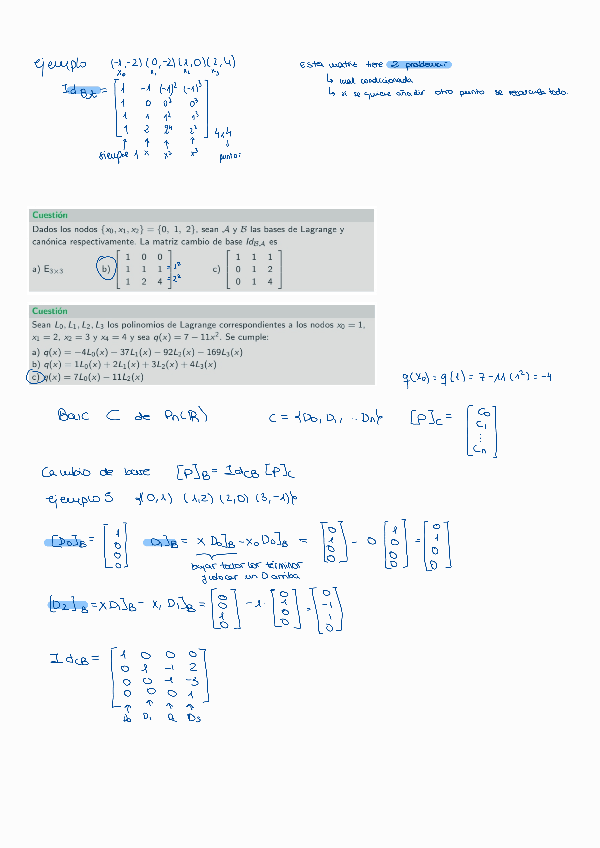 ejemplo (-1,-2) (0,-2) (1,0) (2,4)
x₀ x₁ x₂ x₃
Id_BA = [ 1 -1 (-1)² (-1)³
1 0 0² 0³
1 1 1² 1³
1 2 2² 2³ ] 4x4
siempre 1 x x² x³ puntos
Esta matriz tiene 2 problemas:
↳ mal condicionada
↳ si se quiere añadir otro punto se recalcula todo.
Cuestión
Dados los nodos {x₀, x₁, x₂} = {0, 1, 2}, sean A y B las bases de Lagrange y
canónica respectivamente. La matriz cambio de base Id_BA es
a) E₃ₓ₃ b) [ 1 0 0
1 1 1 = 1²
1 2 4 = 2² ]
c) [ 1 1 1
0 1 2
0 1 4 ]
Cuestión
Sean L₀, L₁, L₂, L₃ los polinomios de Lagrange correspondientes a los nodos x₀ = 1,
x₁ = 2, x₂ = 3 y x₄ = 4 y sea q(x) = 7 − 11x². Se cumple:
a) q(x) = −4L₀(x) − 37L₁(x) − 92L₂(x) − 169L₃(x)
b) q(x) = 1L₀(x) + 2L₁(x) + 3L₂(x) + 4L₃(x)
c) q(x) = 7L₀(x) − 11L₂(x)
q(x₀) = q(1) = 7-11(1²) = -4
Base C de Pn(R) C = {D₀, D₁, ... Dn} [P]_C = [ C₀
C₁
⋮
Cn ]
Cambio de base [P]_B = Id_CB [P]_C
ejemplo 5 {(0,1) (1,2) (2,0) (3,-1)}
[D₀]_B = [ 1 0 0 0 ] D₁]_B = x D₀]_B - x₀ D₀]_B = [ 0 1 0 0 ] - 0 [ 1 0 0 0 ] = [ 0 1 0 0 ]
bajar todos los términos
y colocar un 0 arriba
[D₂]_B = x D₁]_B - x₁ D₁]_B = [ 0 0 1 0 ] - 1 · [ 0 1 0 0 ] = [ 0 -1 1 0 ]
Id_CB = [ 1 0 0 0
0 1 -1 2
0 0 1 -3
0 0 0 1 ]
D₀ D₁ D₂ D₃